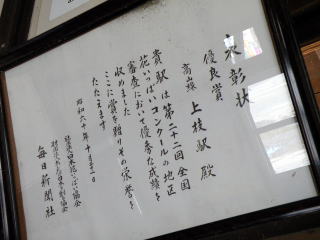 表彰状
優良賞
高山線 上枝駅 殿
貴駅は第二十二回全国
花いっぱいコンクールの地区
審査において優秀な成績を
収めました
ここに賞を贈りその栄誉を
たたえます
昭和六十年十月二十一日
毎日新聞社